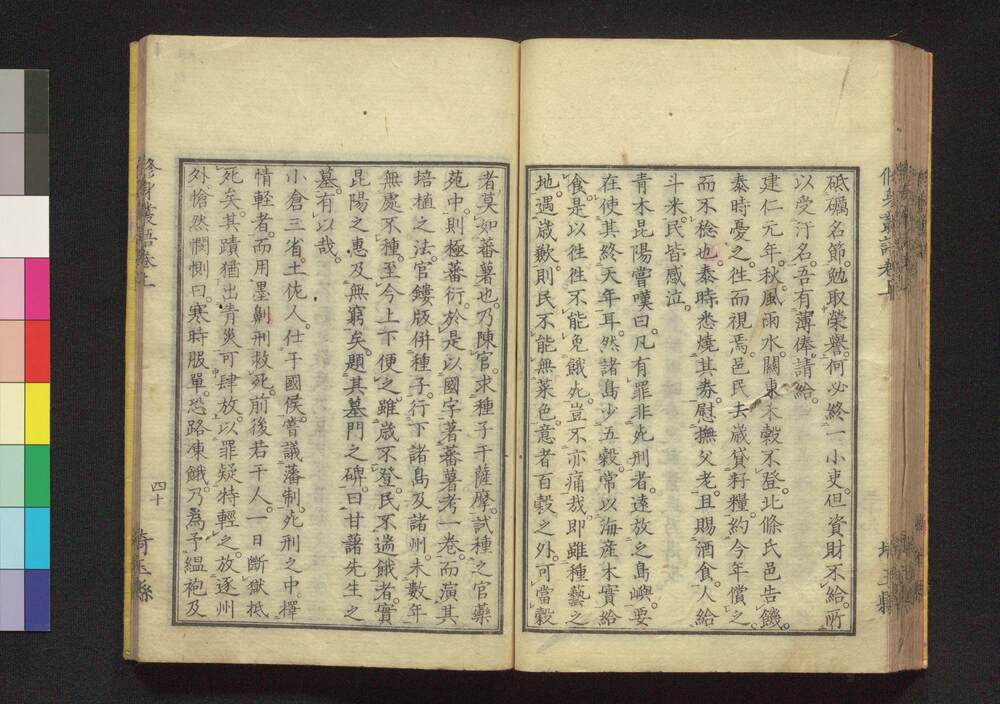 砥礪名節勉取榮譽何必終一小吏但資財不給所
以受汙名吾有薄俸請給
建仁元年秋風雨水關東禾穀不登北條氏邑告饑
泰時憂之往而視焉邑民去歲貸籽糧約今年償之
而不稔也泰時悉燒其劵慰撫父老且賜酒食人給
斗米民皆感泣
青木昆陽嘗嘆曰凡有罪非死刑者遠放之島嶼要
在使其終天年耳然諸島少五穀常以海産木實給
食是以往往不能免餓死豈不亦痛哉即雖種藝之
地遇歲歉則民不能無菜色意者百穀之外可當穀
者莫如蕃薯也乃陳官求種子于薩摩試種之官藥
苑中則極蕃衍於是以國字著蕃薯考一卷而演其
培植之法官鏤版併種子行下諸島及諸州未數年
無處不種至今上下便之雖歳不登民不遄餓者實
昆陽之惠及無窮矣題其墓門之碑曰甘藷先生之
墓有以哉
小倉三省土佐人仕于國侯嘗議藩制死刑之中擇
情輕者而用墨劓刑救死前後若干人一日斷獄抵
死矣其蹟猶出眚災可肆放以罪疑特輕之放逐州
外愴然憫惻曰寒時服單恐路凍餓乃為予縕袍及
修身叢語卷上
四十
埼玉縣